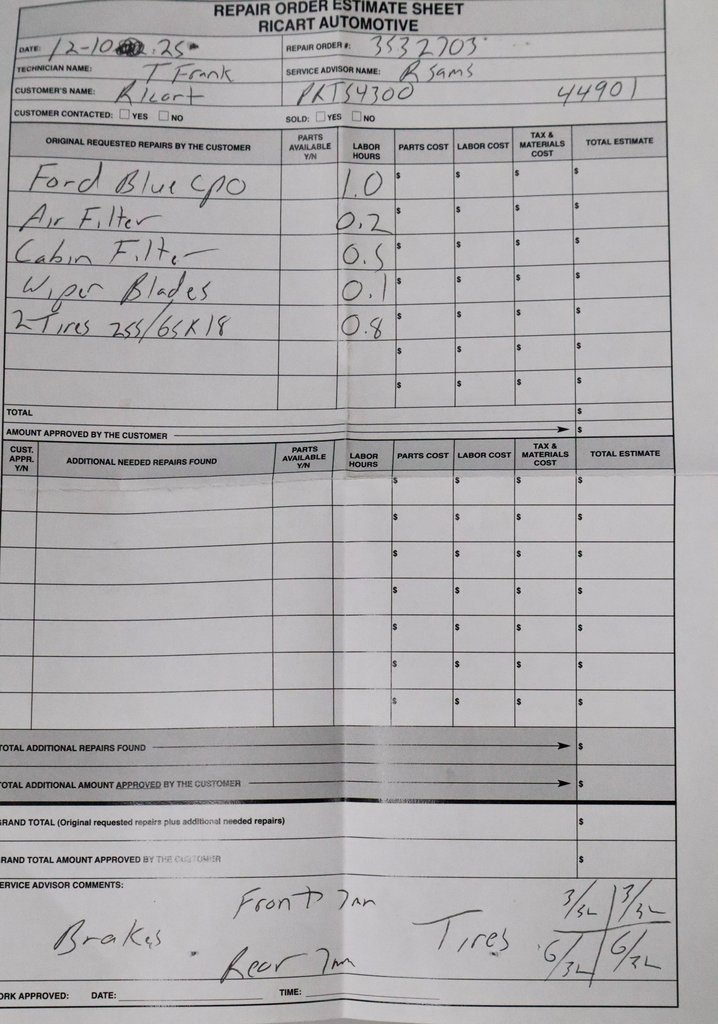 REPAIR ORDER ESTIMATE SHEET
RICART AUTOMOTIVE
DATE: 12-10 25 REPAIR ORDER #: 3532703
TECHNICIAN NAME: T Frank SERVICE ADVISOR NAME: R Sams
CUSTOMER'S NAME: Ricart PRTS4300 44901
CUSTOMER CONTACTED: ☐ YES ☐ NO SOLD: ☐ YES ☐ NO
ORIGINAL REQUESTED REPAIRS BY THE CUSTOMER PARTS AVAILABLE Y/N LABOR HOURS PARTS COST LABOR COST TAX & MATERIALS COST TOTAL ESTIMATE
Ford Blue CPO 1.0 $ $ $ $
Air Filter 0.2 $ $ $ $
Cabin Filter 0.5 $ $ $ $
Wiper Blades 0.1 $ $ $ $
2 Tires 255/65R18 0.8 $ $ $ $
$ $ $ $
$ $ $ $
TOTAL $
AMOUNT APPROVED BY THE CUSTOMER $
CUST. APPR. Y/N ADDITIONAL NEEDED REPAIRS FOUND PARTS AVAILABLE Y/N LABOR HOURS PARTS COST LABOR COST TAX & MATERIALS COST TOTAL ESTIMATE
$ $ $ $
$ $ $ $
$ $ $ $
$ $ $ $
$ $ $ $
$ $ $ $
$ $ $ $
TOTAL ADDITIONAL REPAIRS FOUND $
TOTAL ADDITIONAL AMOUNT APPROVED BY THE CUSTOMER $
GRAND TOTAL (Original requested repairs plus additional needed repairs) $
GRAND TOTAL AMOUNT APPROVED BY THE CUSTOMER $
SERVICE ADVISOR COMMENTS:
Front 7mm 3/32 3/32
Brakes Tires
Rear 7mm 6/32 6/32
WORK APPROVED: DATE: TIME: